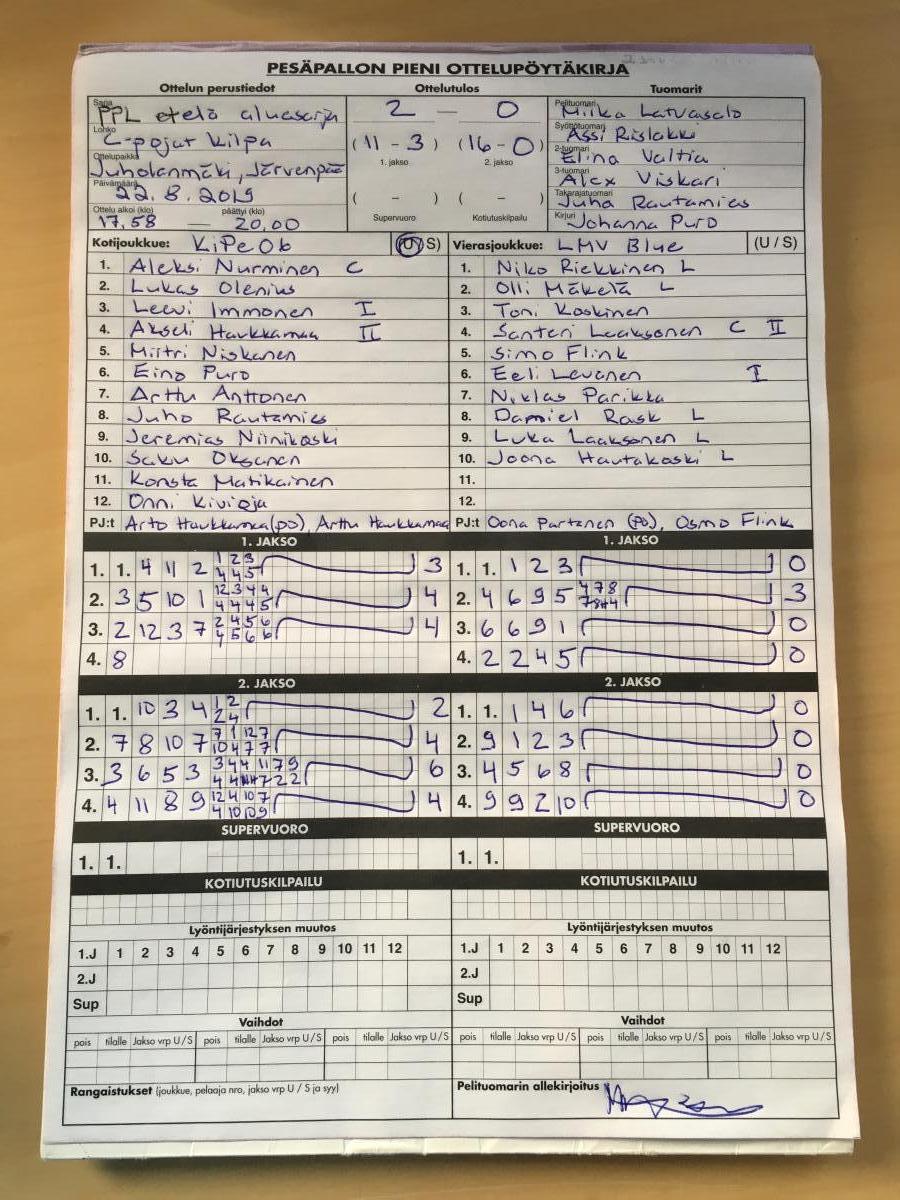 PESÄPALLON PIENI OTTELUPÖYTÄKIRJA
Ottelun perustiedot Ottelutulos Tuomarit
Sarja PPL etelä aluesarja 2 — 0 Pelituomari Miika Latvasalo
Lohko C-pojat kilpa (11 - 3) (16 - 0) Syöttötuomari Assi Rislakki
1. jakso 2. jakso
Ottelupaikka Juholanmäki, Järvenpää 2-tuomari Elina Valtia
Päivämäärä 22.8.2019 ( – ) ( – ) 3-tuomari Alex Viskari
Supervuoro Kotiutuskilpailu Takarajatuomari Juha Rautamies
Ottelu alkoi (klo) 17,58 — päättyi (klo) 20,00 Kirjuri Johanna Puro
Kotijoukkue: KiPeOb (U/S) Vierasjoukkue: LMV Blue (U / S)
1. Aleksi Nurminen C 1. Niko Riekkinen L
2. Lukas Olenius 2. Olli Mäkelä L
3. Leevi Immonen I 3. Toni Koskinen
4. Akseli Haukkamaa II 4. Santeri Laaksonen C II
5. Miitri Niskanen 5. Simo Flink
6. Eino Puro 6. Eeli Levanen I
7. Arttu Anttonen 7. Niklas Parikka
8. Juho Rautamies 8. Daniel Rask L
9. Jeremias Niinikoski 9. Luka Laaksonen L
10. Saku Oksanen 10. Joona Hautakoski L
11. Konsta Matikainen 11.
12. Onni Kivioja 12.
PJ:t Arto Haukkamaa (PO), Arttu Haukkamaa PJ:t Oona Partanen (PO), Osmo Flink
1. JAKSO 1. JAKSO
1. 1. 4 11 2 1 2 3 4 4 5 3 1. 1. 1 2 3 0
2. 3 5 10 1 12 3 4 4 4 4 4 5 4 2. 4 6 9 5 4 7 8 3
3. 2 12 3 7 2 4 5 6 4 5 6 6 4 3. 6 6 9 1 0
4. 8 4. 2 2 4 5 0
2. JAKSO 2. JAKSO
1. 1. 10 3 4 1 2 2 4 2 1. 1. 1 4 6 0
2. 7 8 10 7 7 1 12 7 10 4 7 7 4 2. 9 1 2 3 0
3. 3 6 5 3 3 4 4 11 7 9 6 3. 4 5 6 8 0
4. 4 11 8 9 12 4 10 7 4 10 10 9 4 4. 9 9 2 10 0
SUPERVUORO SUPERVUORO
1. 1. 1. 1.
KOTIUTUSKILPAILU KOTIUTUSKILPAILU
Lyöntijärjestyksen muutos Lyöntijärjestyksen muutos
1.J 1 2 3 4 5 6 7 8 9 10 11 12 1.J 1 2 3 4 5 6 7 8 9 10 11 12
2.J 2.J
Sup Sup
Vaihdot Vaihdot
pois tilalle Jakso vrp U / S pois tilalle Jakso vrp U / S pois tilalle Jakso vrp U / S pois tilalle Jakso vrp U / S pois tilalle Jakso vrp U / S pois tilalle Jakso vrp U / S
Rangaistukset (joukkue, pelaaja nro, jakso vrp U / S ja syy) Pelituomarin allekirjoitus